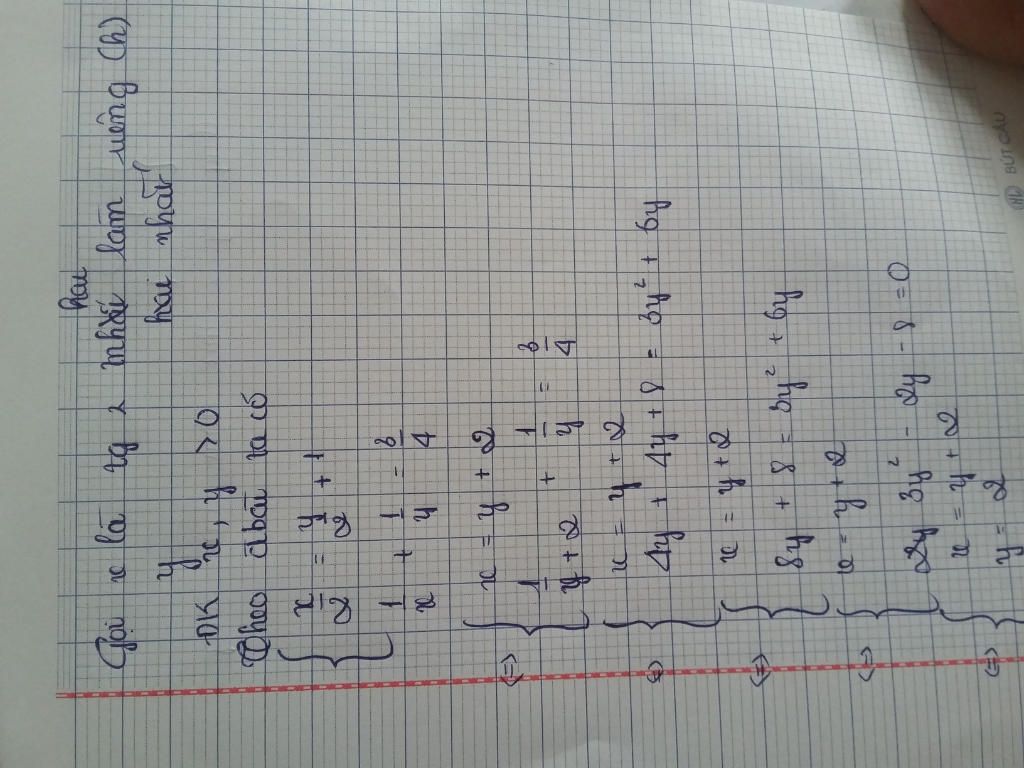 Gọi x là tg 2 nhất làm riêng (h)
hai
y hai nhất
ĐK x, y > 0
Theo đbài ta có
{ x/2 = y/2 + 1
1/x + 1/y = 3/4
<=> { x = y + 2
1/y + 2 + 1/y = 3/4
<=> { x = y + 2
4y + 4y + 8 = 3y² + 6y
<=> { x = y + 2
8y + 8 = 3y² + 6y
<=> { x = y + 2
3y² - 2y - 8 = 0
<=> { x = y + 2
y = 2
BÚT CHÌ